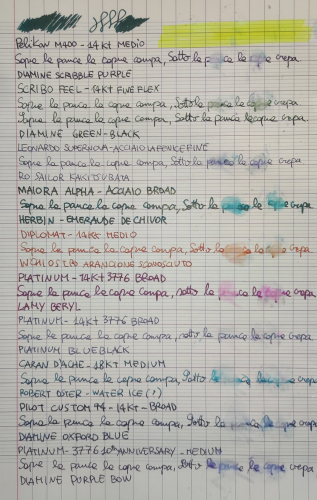 Pelikan M400 - 14Kt MEDIO
Sopra la panca la capra campa, Sotto la panca la capra crepa
DIAMINE SCRIBBLE PURPLE
SCRIBO FEEL - 14Kt FINE FLEX
Sopra la panca la capra campa, Sotto la panca la capra crepa.
Sopra la panca la capra campa, Sotto la panca la capra crepa.
DIAMINE GREEN-BLACK
LEONARDO SUPERNOVA - ACCIAIO FINE
Sopra la panca la capra campa, Sotto la panca la capra crepa
SAILOR KAKITSUBATA
MAIORA ALPHA - ACCIAIO BROAD
Sopra la panca la capra campa, Sotto la panca la capra crepa
HERBIN - EMERAUDE DE CHIVOR
DIPLOMAT - 14Kt MEDIO
Sopra la panca la capra campa, Sotto la panca la capra crepa
INCHIOSTRO ARANCIONE SCONOSCIUTO
PLATINUM - 14Kt 3776 BROAD
Sopra la panca la capra campa, sotto la panca la capra crepa
LAMY BERYL
PLATINUM - 14Kt 3776 BROAD
Sopra la panca la capra campa, sotto la panca la capra crepa
PLATINUM BLUE BLACK
CARAN D'ACHE - 18Kt MEDIUM
Sopra la panca la capra campa, Sotto la panca la capra crepa
ROBERT OSTER - WATER ICE (!)
PILOT CUSTOM 74 - 14Kt - BROAD
Sopra la panca la capra campa, Sotto la panca la capra crepa
DIAMINE OXFORD BLUE
PLATINUM - 3776 ANNIVERSARY - MEDIUM
Sopra la panca la capra campa, Sotto la panca la capra crepa
DIAMINE PURPLE BOW